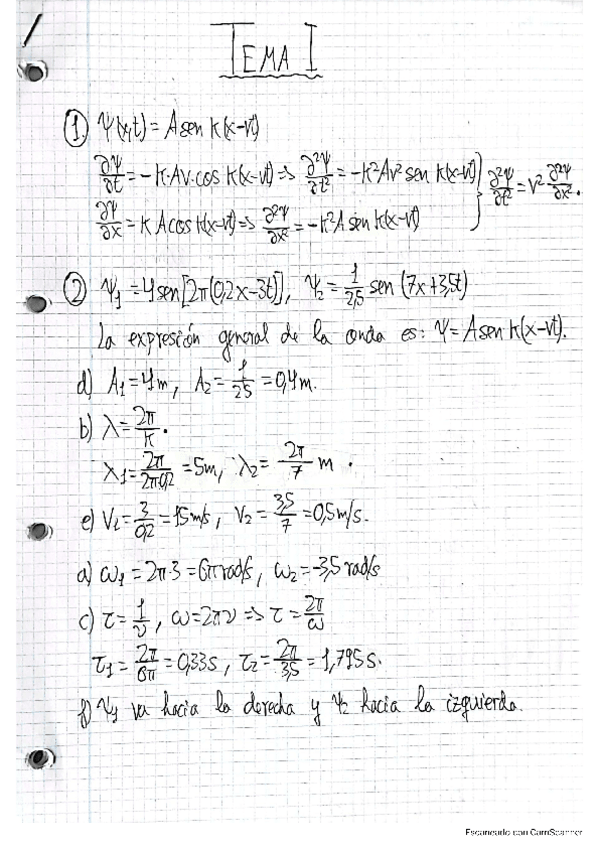 TEMA I
① Ψ(x,t) = A sen k(x-vt)
∂Ψ/∂t = -k·Av·cos k(x-vt) => ∂²Ψ/∂t² = -k²Av² sen k(x-vt) } ∂²Ψ/∂t² = v² ∂²Ψ/∂x².
∂Ψ/∂x = k A cos k(x-vt) => ∂²Ψ/∂x² = -k²A sen k(x-vt)
② Ψ₁ = 4 sen[2π(0,2x-3t)], Ψ₂ = 1/2,5 sen (7x+3,5t)
La expresión general de la onda es: Ψ = A sen k(x-vt).
d) A₁ = 4m, A₂ = 1/2,5 = 0,4m.
b) λ = 2π/k.
λ₁ = 2π/2π·0,2 = 5m, λ₂ = 2π/7 m.
e) V₁ = 3/0,2 = 15m/s, V₂ = 3,5/7 = 0,5m/s.
a) ω₁ = 2π·3 = 6π rad/s, ω₂ = -3,5 rad/s
c) τ = 1/ν, ω = 2πν => τ = 2π/ω
τ₁ = 2π/6π = 0,33s, τ₂ = 2π/3,5 = 1,795s.
f) Ψ₁ va hacia la derecha y Ψ₂ hacia la izquierda.
Escaneado con CamScanner